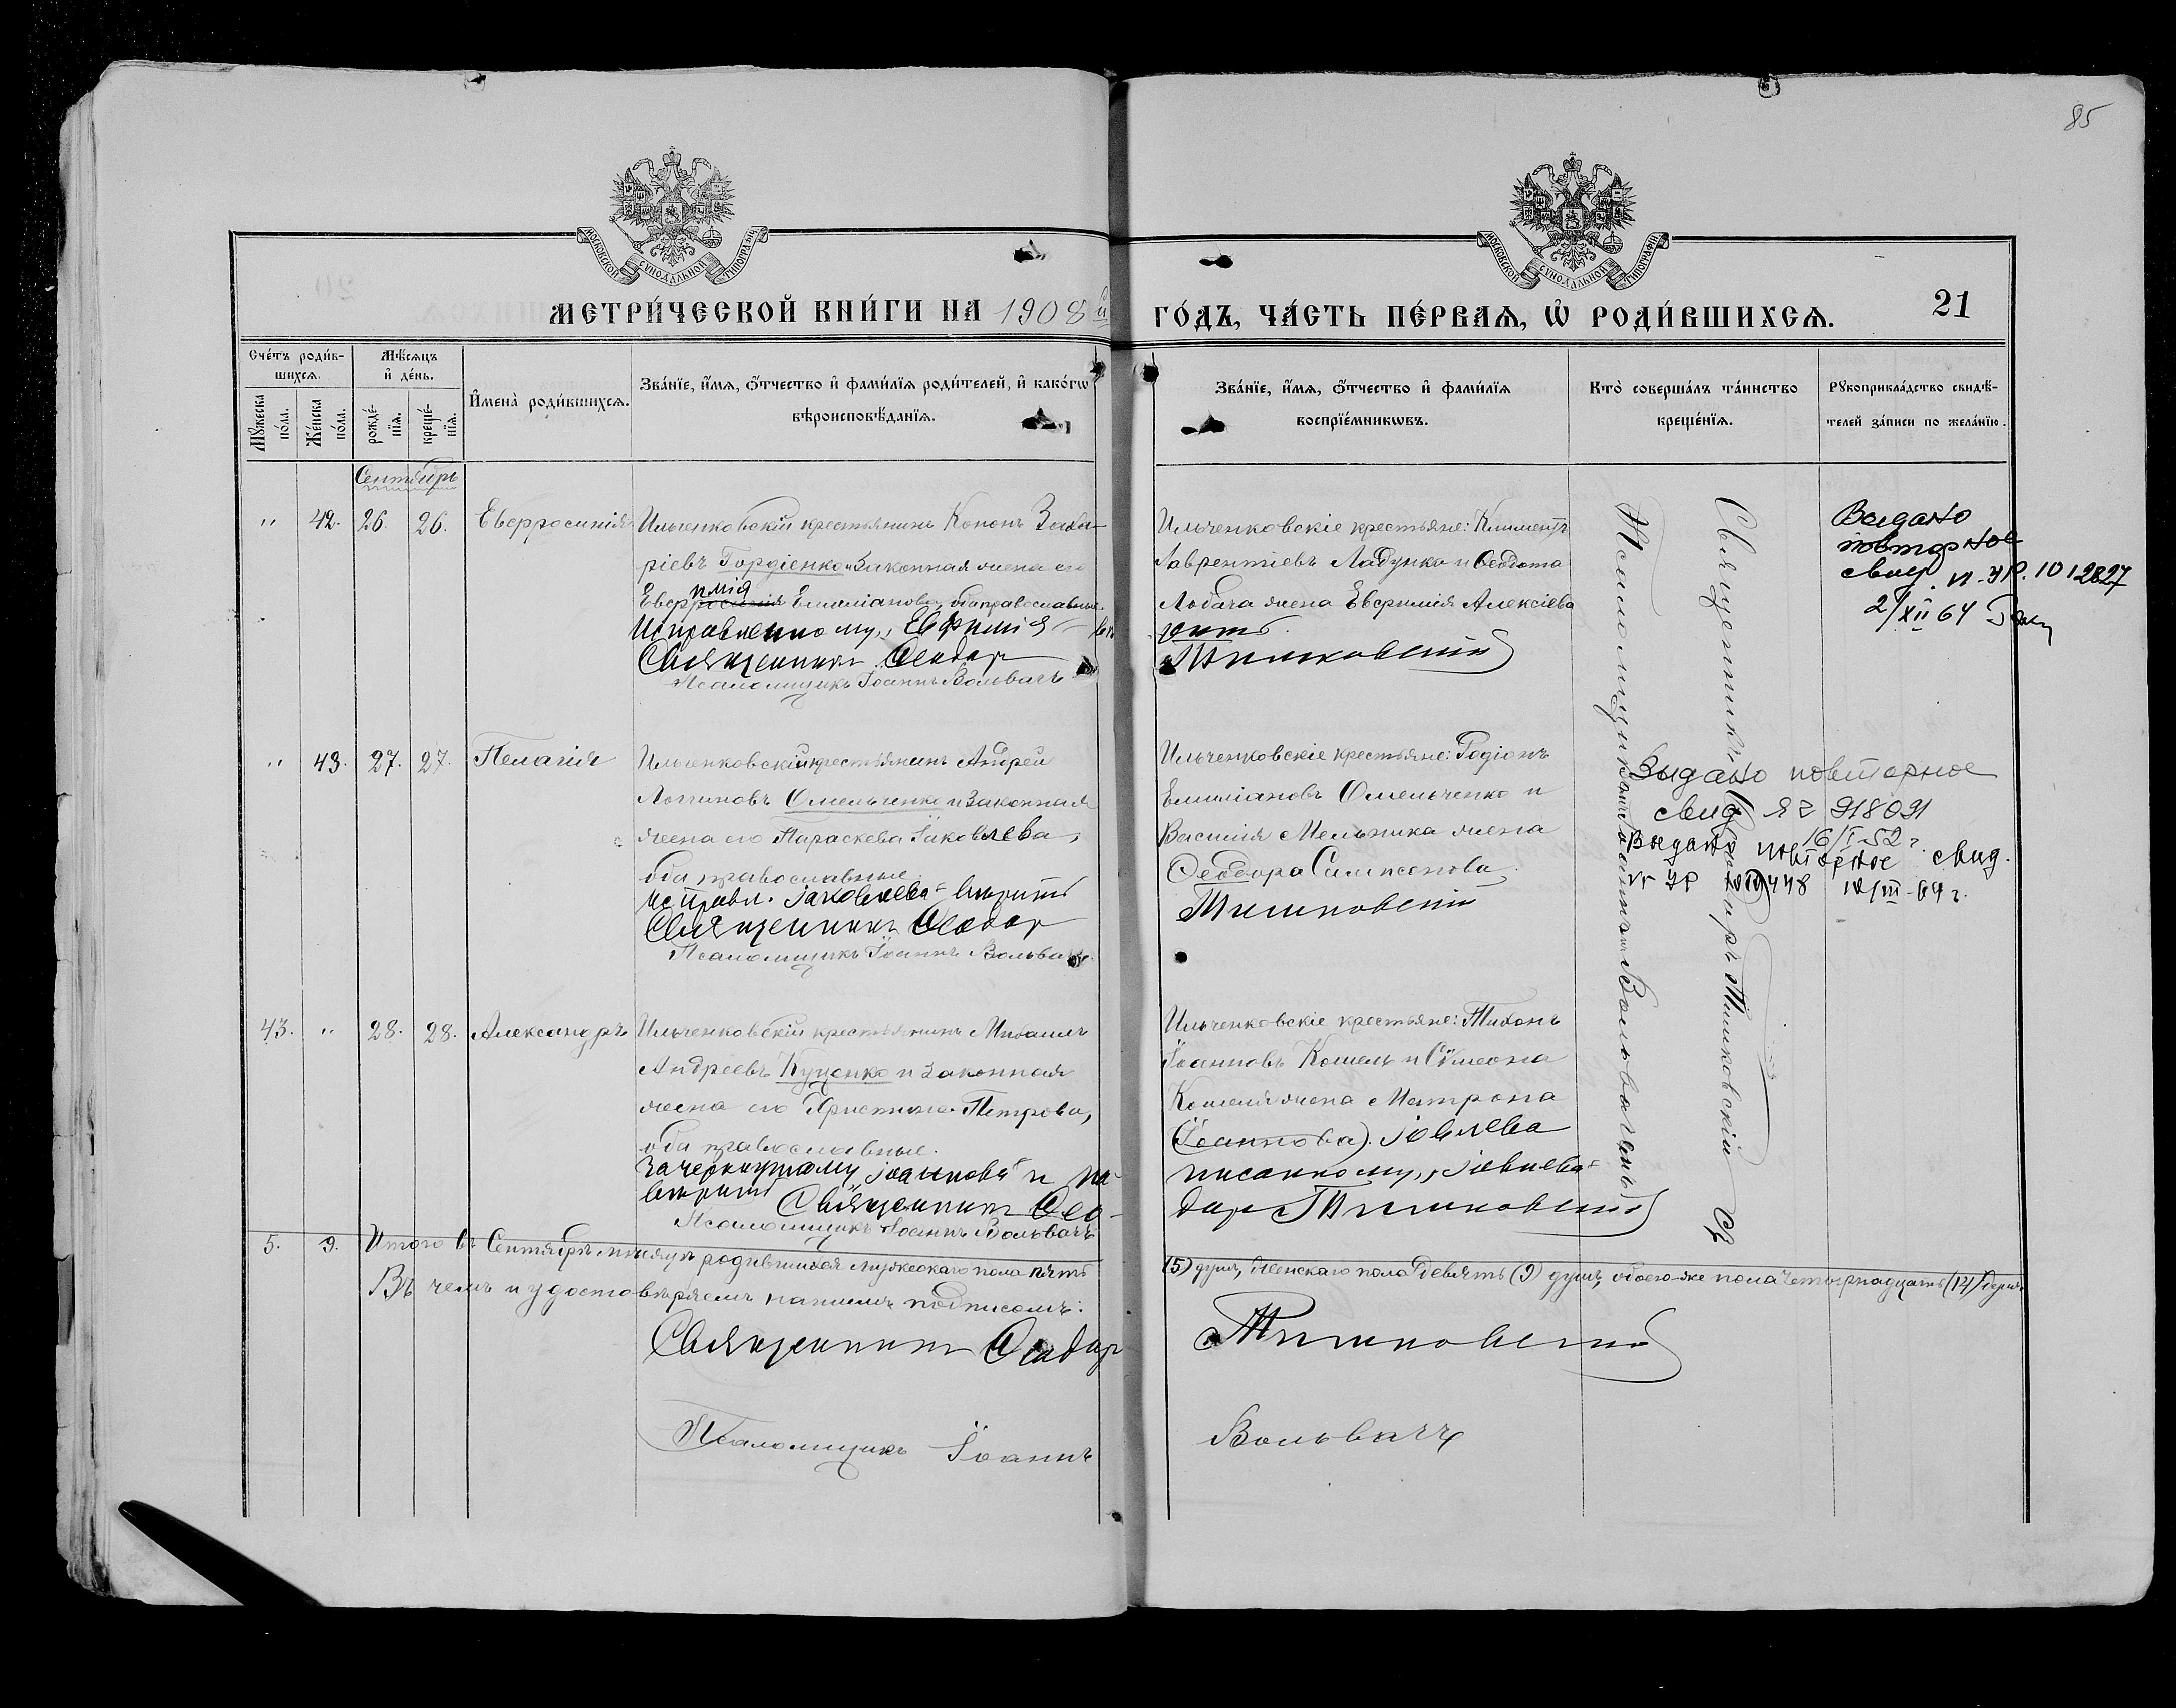 85
МОСКОВСКОЙ СѴНОДАЛЬНОЙ ТИПОГРАФІИ
МОСКОВСКОЙ СѴНОДАЛЬНОЙ ТИПОГРАФІИ
МЕТРИ́ЧЕСКОЙ КНИ́ГИ НА 1908 й
ГО́ДЪ, ЧА́СТЬ ПЕ́РВАѦ, Ѡ҆ РОДИ́ВШИХСѦ.
21
Сче́тъ роди́в-
шихсѧ.
Мꙋ́жеска по́ла.
Же́нска по́ла.
Мѣ́сѧцъ
и҆ де́нь.
рожде́-
нїѧ.
креще́-
нїѧ.
И҆мена̀ роди́вшихсѧ.
Зва́нїе, и҆́мѧ, ѻ҆́тчество и҆ фами́лїѧ роди́телей, и҆ како́гѡ
вѣроисповѣ́данїѧ.
Зва́нїе, и҆́мѧ, ѻ҆́тчество и҆ фами́лїѧ
воспрїе́мникѡвъ.
Кто̀ соверша́лъ та́инство
креще́нїѧ.
Рꙋкоприкла́дство свидѣ́-
телей за́писи по жела́нїю.
Сентябрь
" 42. 26. 26. Евфросинія
Ильченковскій крестьянинъ Кононъ Заха-
ріевъ Гордіенко и законная жена его
Евфросинія пмія Емиліанова, оба православные.
Исправленному „Евфимія"
Священникъ Ѳеодор
Псаломщикъ Іоаннъ Вольвачъ
Ильченковскіе крестьяне: Климентъ
Лаврентіевъ Ладунка и Ѳеодота
Лобача жена Евфимія Алексіева
рить
Тишковскій
Выдано
повторное
свид. VI-УР. 1012827
2/XII 64
" 43. 27. 27. Пелагія
Ильченковскій крестьянинъ Андрей
Логиновъ Омельченко и законная
жена его Параскева Іаковлева,
оба православные.
Исправл. Іаковлева вѣрить
Священникъ Ѳеодор
Псаломщикъ Іоаннъ Вольвачъ
Ильченковскіе крестьяне: Родіонъ
Емиліановъ Омельченко и
Василія Мельника жена
Ѳеодора Сампсонова
Тишковскій
Выдано повторное
свид ЯГ 918091
16/I-52 г.
Выдано повторное свид.
448 III-69 г.
43. " 28. 28. Александръ
Ильченковскій крестьянинъ Михаилъ
Андреевъ Куценко и законная
жена его Христина Петрова,
оба православные.
Зачеркнутому „Іоаннова" и на-
вѣрить Священникъ Ѳео-
Псаломщикъ Іоаннъ Вольвачъ
Ильченковскіе крестьяне: Тихонъ
Іоанновъ Кошель и Сѵмеона
Кошеля жена Матрона
(Іоаннова). Іовлева
писанному „Іовлева"
дор Тишковскій
Священникъ Тишковскій съ
Псаломщикомъ Вольвачемъ
5. 9. Итого въ Сентябрѣ мѣсяцѣ родившихся мужескаго пола пять
(5) душъ, женскаго пола девять (9) душъ, обоего-же пола четырнадцать (14) душъ
Въ чемъ и удостовѣряемъ нашимъ подписомъ:
Священникъ Ѳеодор
Тишковскій
Псаломщикъ Іоаннъ
Вольвачъ